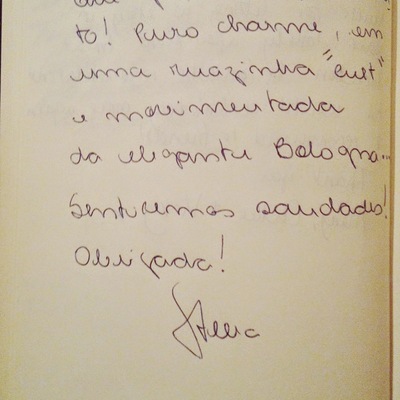 to! Puro charme, em
uma ruazinha "cult"
e movimentada
da elegante Bologna...
Sentiremos saudades!
Obrigada!